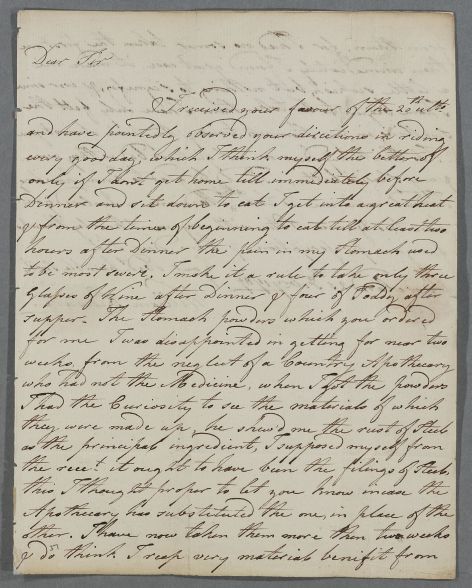 Dear Sir
I received your favour of the 20th ulto
and have pointedly observed your directions in riding
every good day, which I think myself the better of
only if I dont get home till immediately before
Dinner and sit down to eat I get into a great heat
& from the time of beginning to eat till at least two
hours after Dinner the pain in my Stomach used
to be most severe, I make it a rule to take only three
Glasses of Wine after Dinner & four of Toddy after
supper. The Stomach powders which you ordered
for me I was disappointed in getting for near two
weeks, from the neglect of a Country Apothecary
who had not the Medicine, when I got the powders
I had the Curiosity to see the materials of which
they were made up, he shew'd me the rust of Steel
as the principal ingredient, I supposed myself from
the recet it ought to have been the filings of Steel,
this I thought proper to let you know incase the
Apothecary has substituted the one, in place of the
other. I have now taken them more then two weeks
& do think I reap very material benifit from